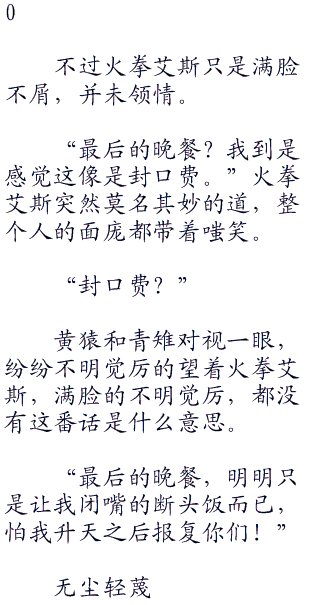 0
不过火拳艾斯只是满脸
不屑，并未领情。
“最后的晚餐？我到是
感觉这像是封口费。”火拳
艾斯突然莫名其妙的道，整
个人的面庞都带着嗤笑。
“封口费？”
黄猿和青雉对视一眼，
纷纷不明觉厉的望着火拳艾
斯，满脸的不明觉厉，都没
有这番话是什么意思。
“最后的晚餐，明明只
是让我闭嘴的断头饭而已，
怕我升天之后报复你们！”
无尘轻蔑